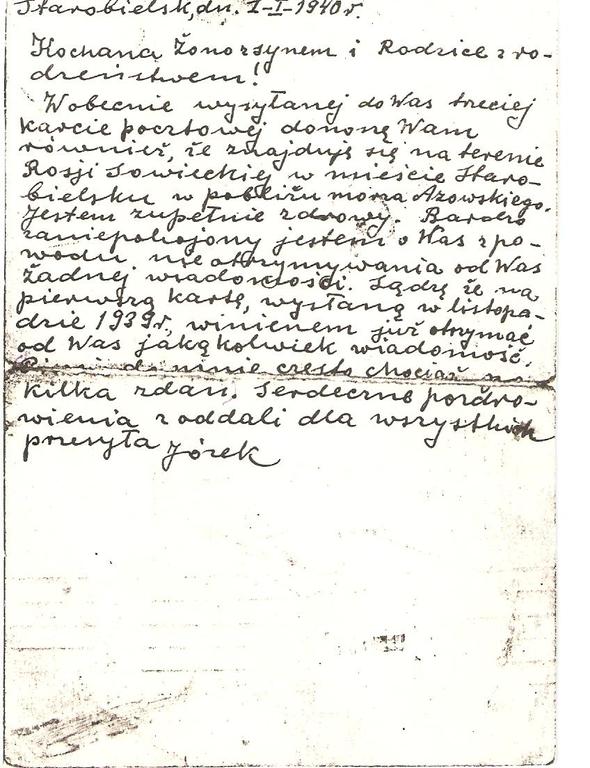 Starobielsk, dn. 1-I-1940 r.
Kochana Żono z synem i Rodzice z ro-
dzeństwem!
Wobecnie wysyłanej do Was trzeciej
karcie pocztowej donoszę Wam
również, że znajduję się na terenie
Rosji Sowieckiej w mieście Staro-
bielsku w pobliżu morza Azowskiego.
Jestem zupełnie zdrowy. Bardzo
zaniepokojony jestem o Was z po-
wodu nieotrzymywania od Was
żadnej wiadomości. Sądzę że na
pierwszą kartę, wysłaną w listopa-
dzie 1939 r, winienem już otrzymać
od Was jakąkolwiek wiadomość.
do mnie często chociaż
kilka zdań. Serdeczne pozdro-
wienia z oddali dla wszystkich
przesyła Józek